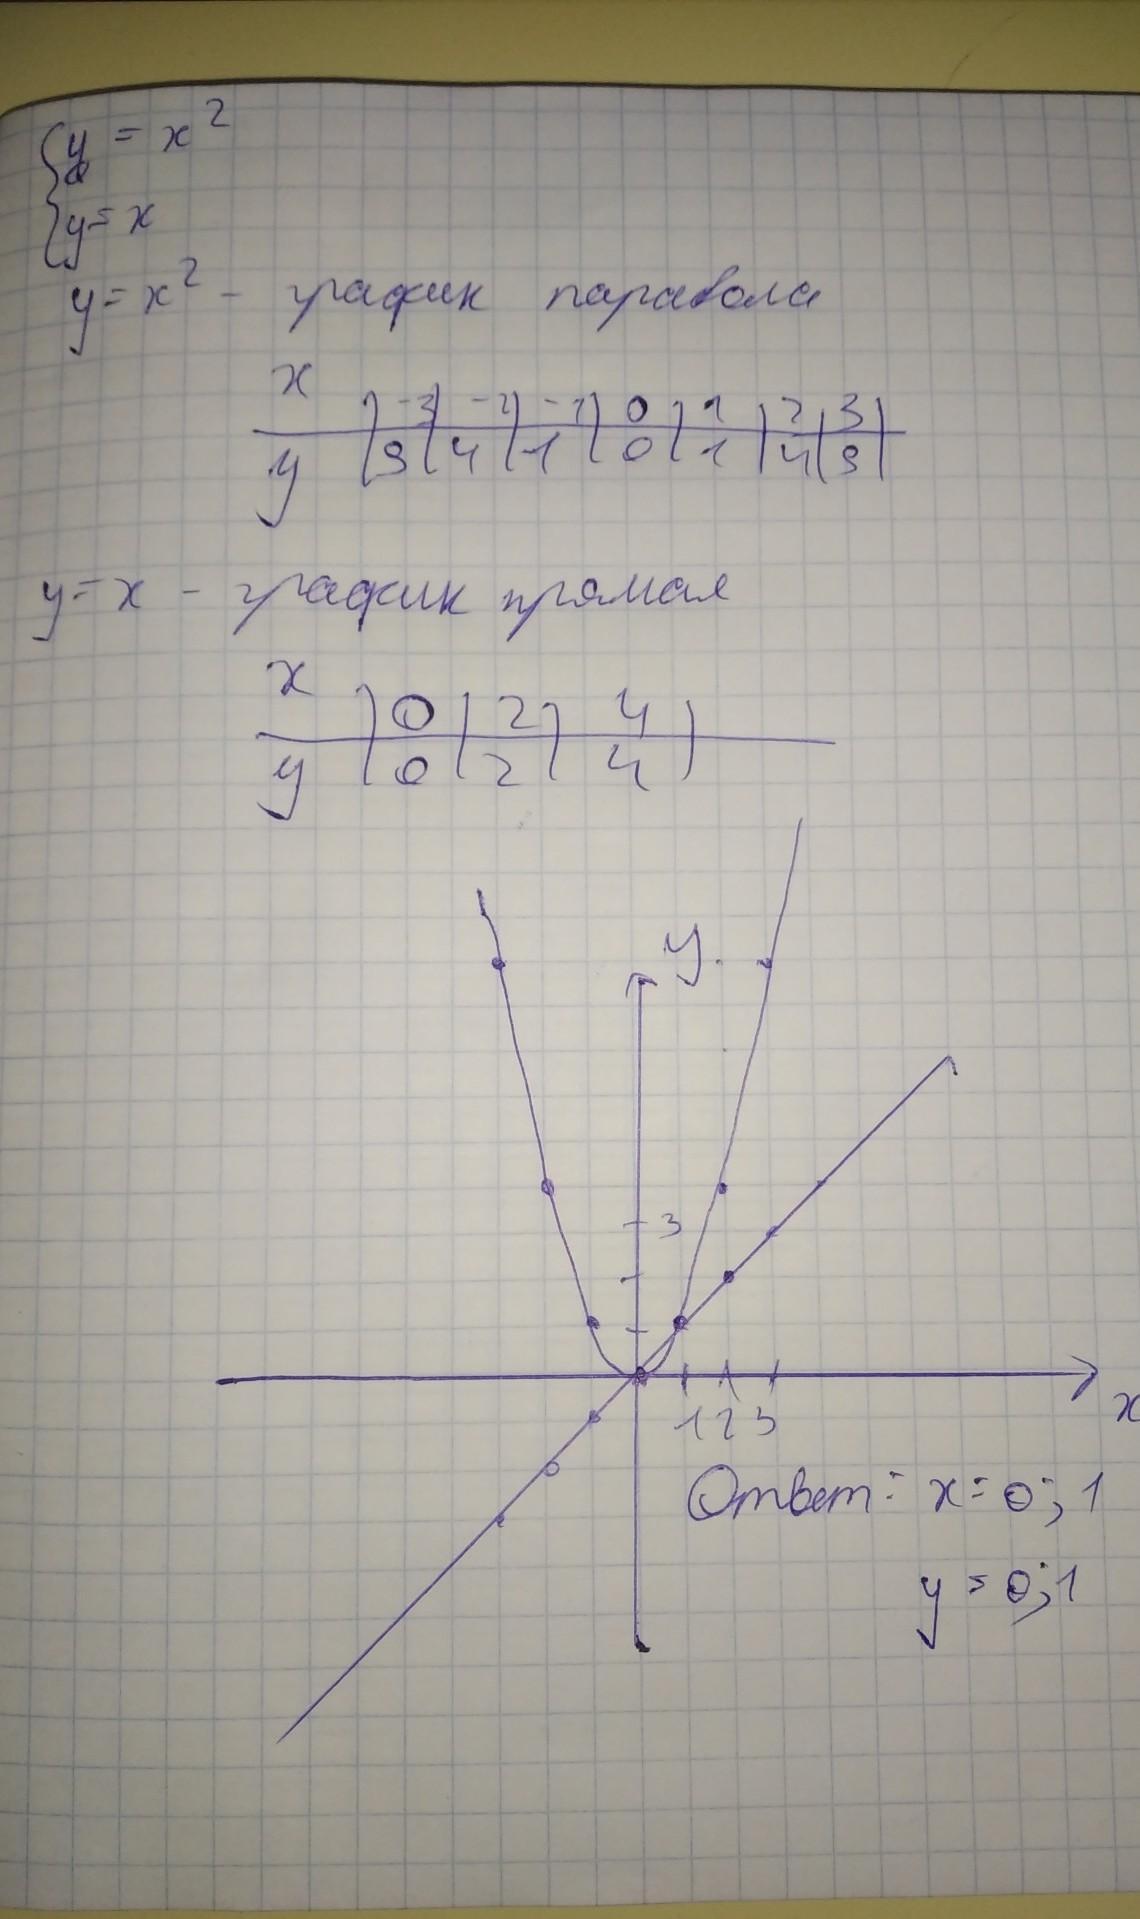 { y = x²
y = x
y = x² - график парабола
x | -3 | -2 | -1 | 0 | 1 | 2 | 3 |
y | 9 | 4 | 1 | 0 | 1 | 4 | 9 |
y = x - график прямая
x | 0 | 2 | 4 |
y | 0 | 2 | 4 |
y
3
1 2 3
x
Ответ: x = 0; 1
y = 0; 1